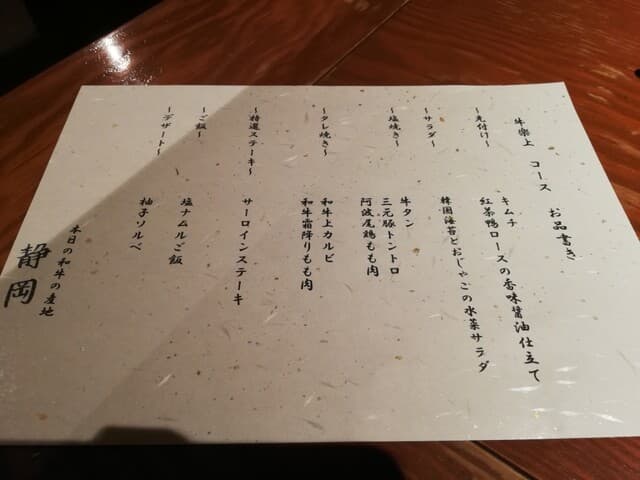 牛楽上 コース お品書き
~先付け~
キムチ
紅茶鴨ロースの香味醤油仕立て
~サラダ~
韓国海苔とおじゃこの水菜サラダ
~塩焼き~
牛タン
三元豚トントロ
阿波尾鶏もも肉
~タレ焼き~
和牛上カルビ
和牛霜降りもも肉
~特選ステーキ~
サーロインステーキ
~ご飯~
塩ナムルご飯
~デザート~
柚子ソルベ
本日の和牛の産地
静岡